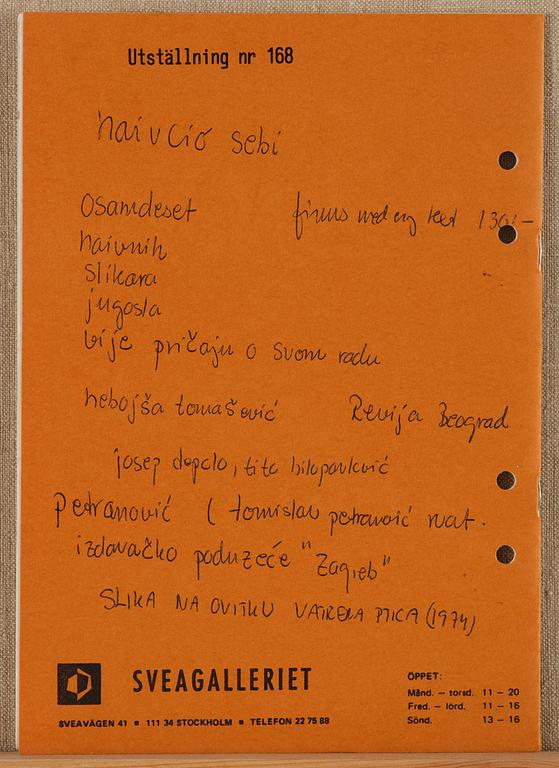 Utställning nr 168
naivci o sebi
osamdeset finns med eng text 130:-
naivnih
slikara
jugosla
vije pričaju o svom radu
nebojša tomašević Revija Beograd
josep depolo, tito bilopavlović
Petranović ( tomislav petranović rvat.
izdavačko poduzeće "Zagreb"
SLIKA NA OVITKU VATRENA PTICA (1974)
SVEAGALLERIET
SVEAVÄGEN 41 ■ 111 34 STOCKHOLM ■ TELEFON 22 75 88
ÖPPET:
Månd. – torsd. 11 – 20
Fred. – lörd. 11 – 16
Sönd. 13 – 16